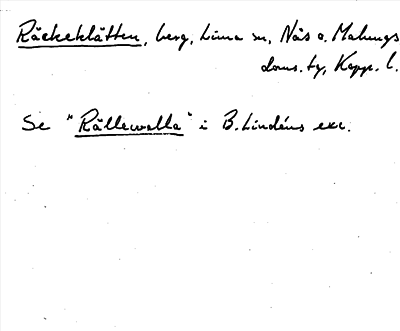 Räckeklätten, berg, Lima sn, Näs o. Malungs
doms. tg, Kopp. l.
Se "Rällewalla" i B. Lindéns exc.